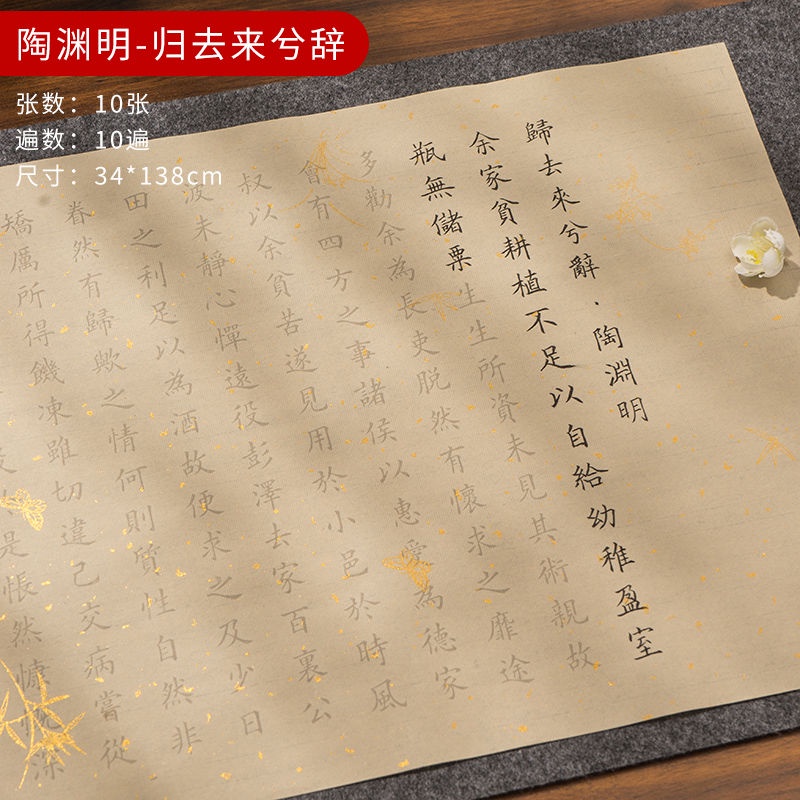 陶渊明-归去来兮辞
张数：10张
遍数：10遍
尺寸：34*138cm
歸去來兮辭·陶淵明
余家貧耕植不足以自給幼稚盈室
瓶無儲粟生生所資未見其術親故
多勸余為長吏脫然有懷求之靡途
會有四方之事諸侯以惠愛為德家
叔以余貧苦遂見用於小邑於時風
波未靜心憚遠役彭澤去家百裏公
田之利足以為酒故便求之及少日
眷然有歸歟之情何則質性自然非
矯厲所得饑凍雖切違己交病嘗從
是悵然慷慨深